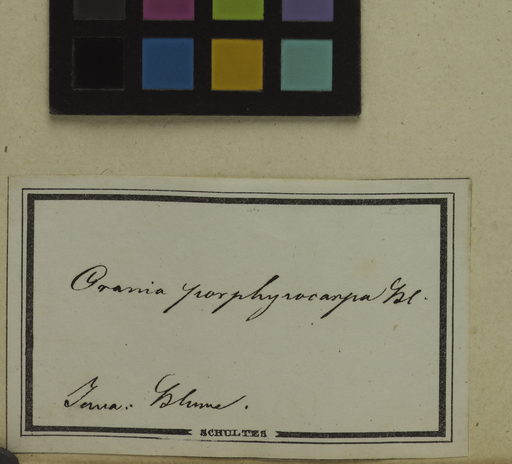 Orania porphyrocarpa Bl.
Java. Blume.
SCHULTES